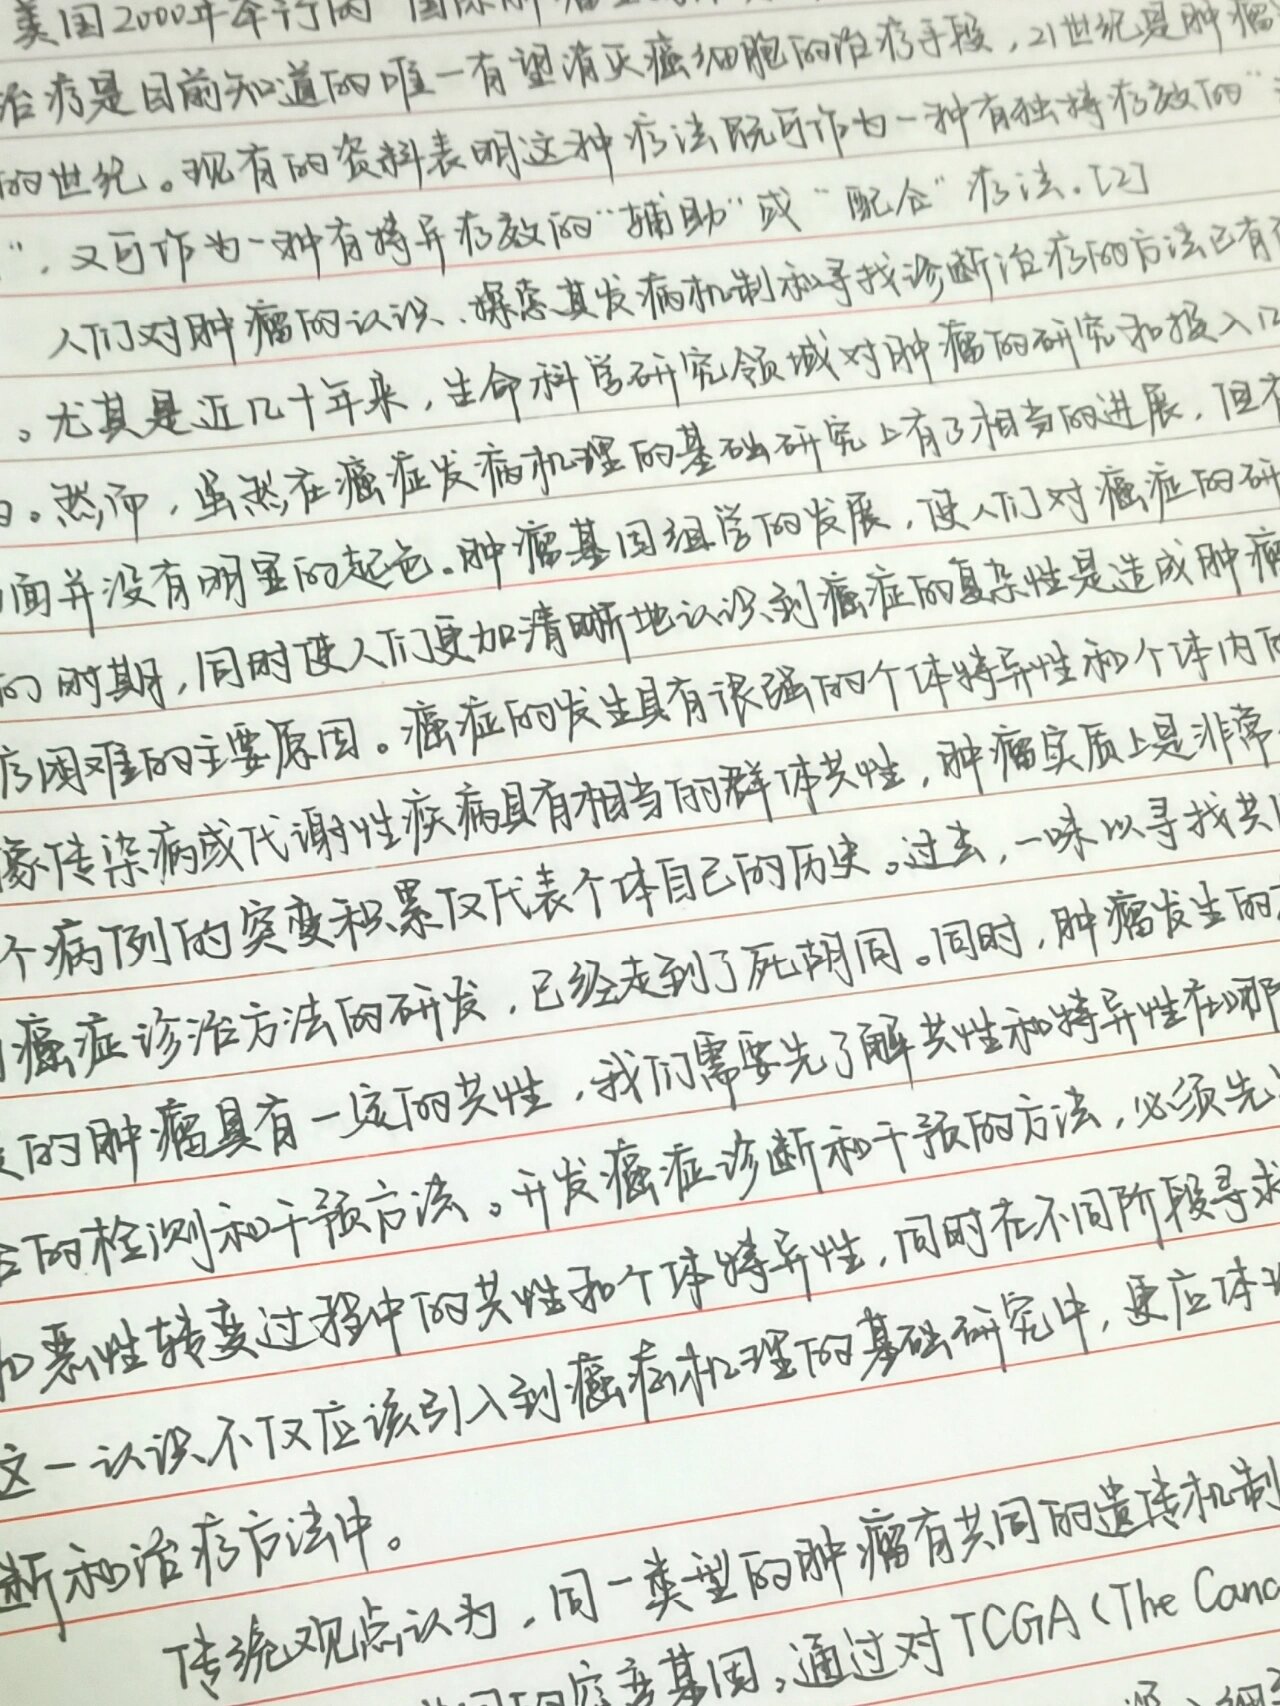 美国2000年举行的"国际肿瘤
治疗是目前知道的唯一有望消灭癌细胞的治疗手段，21世纪是肿瘤
的世纪。现有的资料表明这种疗法既可作为一种有独特疗效的"
"，又可作为一种有特异疗效的"辅助"或"配合"疗法.[2]
人们对肿瘤的认识、探索其发病机制和寻找诊断治疗的方法已有
。尤其是近几十年来，生命科学研究领域对肿瘤的研究和投入
。然而，虽然在癌症发病机理的基础研究上有了相当的进展，但
面并没有明显的起色。肿瘤基因组学的发展，使人们对癌症的研
的时期，同时使人们更加清晰地认识到癌症的复杂性是造成肿瘤
疗困难的主要原因。癌症的发生具有很强的个体特异性和个体内
像传染病或代谢性疾病具有相当的群体共性，肿瘤实质上是非常
个病例的突变积累仅代表个体自己的历史。过去，一味以寻找共
癌症诊治方法的研发，已经走到了死胡同。同时，肿瘤发生的
的肿瘤具有一定的共性，我们需要先了解共性和特异性在哪
的检测和干预方法。开发癌症诊断和干预的方法，必须先
和恶性转变过程中的共性和个体特异性，同时在不同阶段寻求
这一认识不仅应该引入到癌病机理的基础研究中，更应体现
断和治疗方法中。
传统观点认为，同一类型的肿瘤有共同的遗传机制
的突变基因，通过对TCGA（The Canc